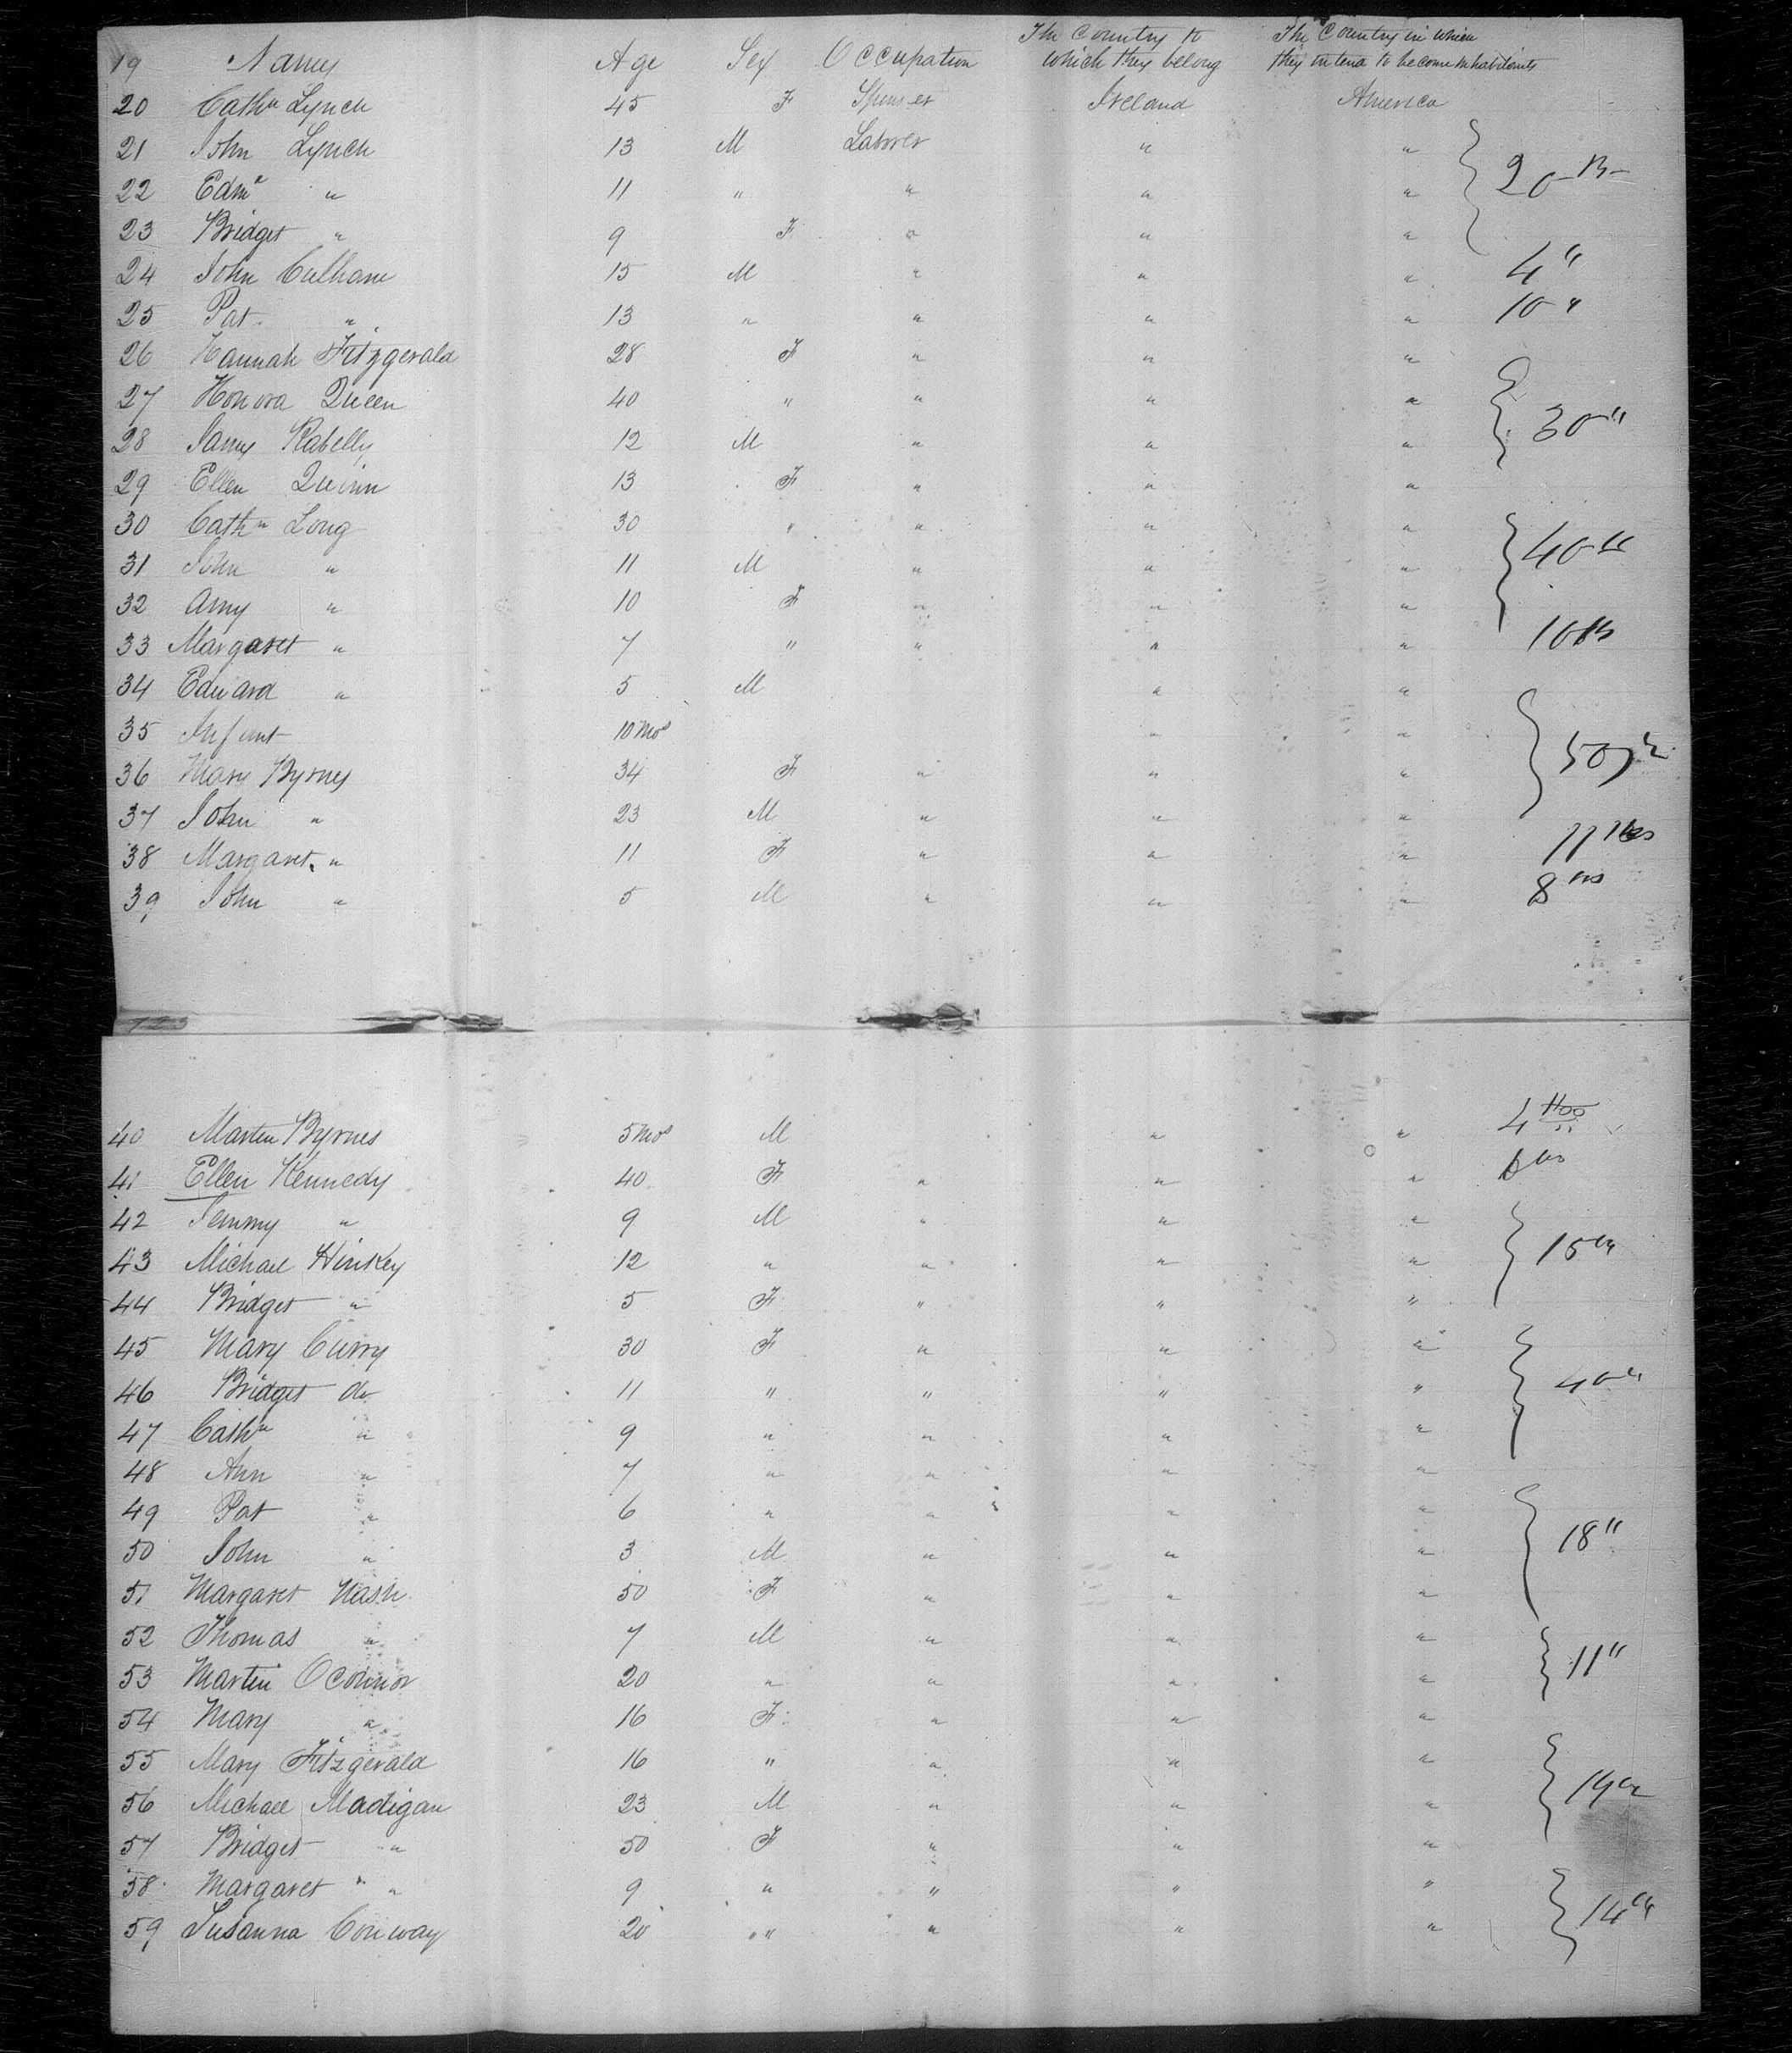 19 Names Age Sex Occupation The Country to which they belong The Country in which they intend to become inhabitants
20 Cathn Lynch 45 F Spinster Ireland America
21 John Lynch 13 M Laborer " "
22 Edmd " 11 " " " " 20 lbs
23 Bridget " 9 F " " "
24 John Culhane 15 M " " " 4 "
25 Pat " 13 " " " " 10 "
26 Hannah Fitzgerald 28 F " " "
27 Honora Queen 40 " " " " 30 "
28 James Rabelly 12 M " " "
29 Ellen Quinn 13 F " " "
30 Cathn Long 30 " " " "
31 John " 11 M " " " 40 "
32 Amy " 10 F " " "
33 Margaret " 7 " " " " 10 lbs
34 Edward " 5 M " "
35 Infant 10 Mos " "
36 Mary Byrnes 34 F " " " 50
37 John " 23 M " " "
38 Margaret " 11 F " " " 11 lbs
39 John " 5 M " " " 8
40 Martin Byrnes 5 Mos M " " 4
41 Ellen Kennedy 40 F " " "
42 Jemmy " 9 M " " "
43 Michael Hinkey 12 " " " " 15 "
44 Bridget " 5 F " " "
45 Mary Curry 30 F " " "
46 Bridget do 11 " " " " 40 "
47 Cathn " 9 " " " "
48 Ann " 7 " " " "
49 Pat " 6 " " " "
50 John " 3 M " " " 18 "
51 Margaret Nash 50 F " " "
52 Thomas " 7 M " " "
53 Martin OConnor 20 " " " " 11 "
54 Mary " 16 F " " "
55 Mary Fitzgerald 16 " " " "
56 Michael Madigan 23 M " " " 14 "
57 Bridget " 50 F " " "
58 Margaret " " 9 " " " "
59 Susanna Conway 20 " " " " 14 "